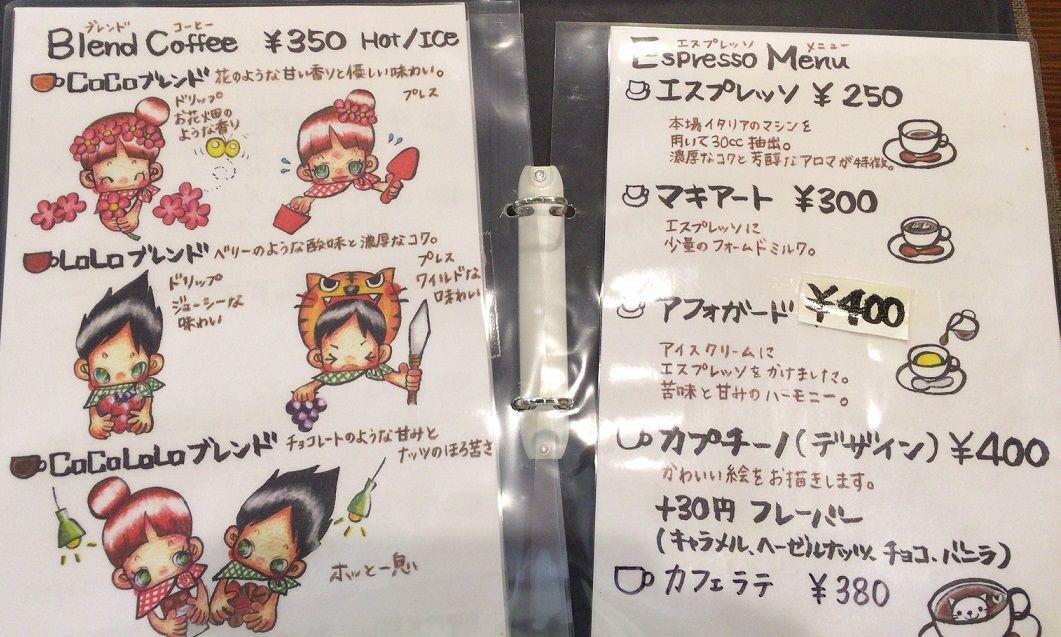 ブレンド コーヒー
Blend Coffee ¥350 Hot/Ice
CoCoブレンド 花のような甘い香りと優しい味わい。
ドリップ
お花畑の
ような香り
プレス
LoLoブレンド ベリーのような酸味と濃厚なコク。
ドリップ
ジューシーな
味わい
プレス
ワイルドな
味わい
CoCoLoLoブレンド チョコレートのような甘みと
ナッツのほろ苦さ
ホッと一息
エスプレッソ メニュー
Espresso Menu
エスプレッソ ¥250
本場イタリアのマシンを
用いて30cc抽出。
濃厚なコクと芳醇なアロマが特徴。
マキアート ¥300
エスプレッソに
少量のフォームドミルク。
アフォガード ¥400
アイスクリームに
エスプレッソをかけました。
苦味と甘みのハーモニー。
カプチーノ(デザイン) ¥400
かわいい絵をお描きします。
+30円 フレーバー
(キャラメル、ヘーゼルナッツ、チョコ、バニラ)
カフェラテ ¥380